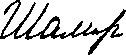 Шамир